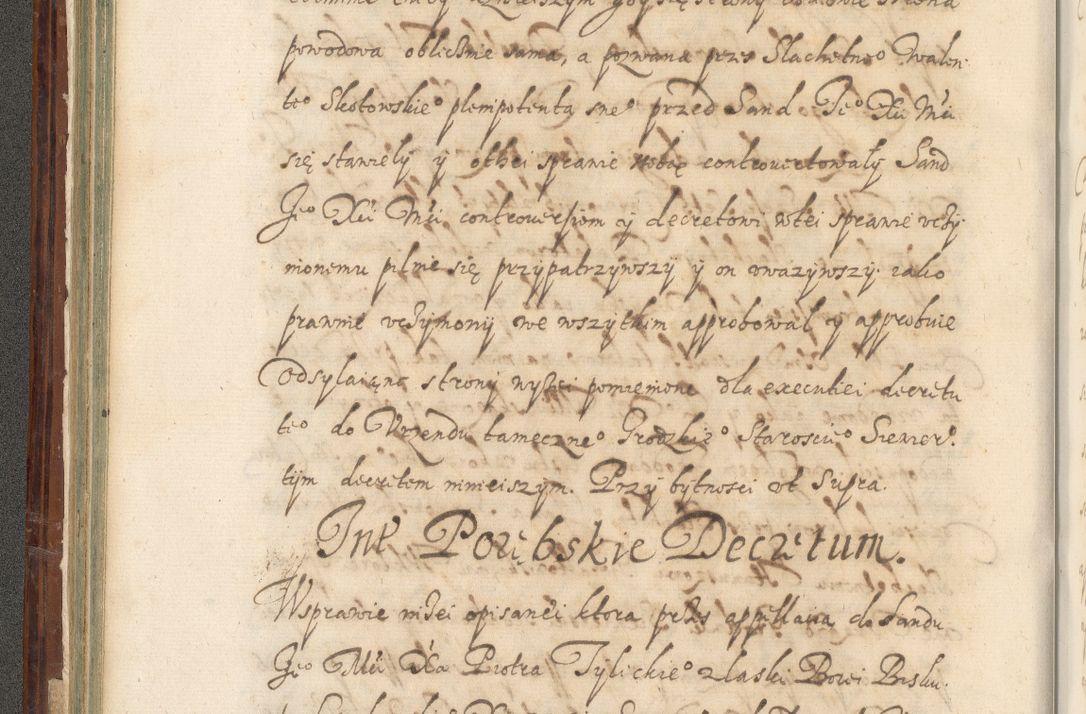 powodowa oblicznie sama, a pozwana przes Slachetneº Walen
teº Skotowskieº plenipotenta sneº przed Sand Jeº Xu Mci
się stawiely y othei sprawie wobaę controvertowały Sand
Jeº Xu Mci controversiom y decretowi wtei sprawie vczy
nionemu pilnie się przypatrzywszy y on vwazywszy iako
prawnie vczymony we wszytkim approbował y approbuie
Odsylaiąnc strony wyszei pomienione dla executiei decretu
teº do Vrzendu tamecznegº Grodzkieº Starosciiº Siewierº
tym decretem ninieiszym. Przy bytnosci vt Supra.
Int Porębskie Decretum.
Wsprawie niżei opisanei ktora przes appellacia do Sandu
Jeº Mci Xa Piotra Tylickieº z laski Bozei Bisku